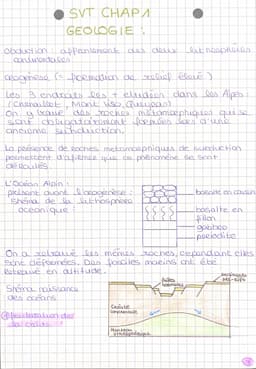 SVT CHAP1
GEOLOGIE :
obduction : affrontement des deux lithosphères
continentales
orogénèse (= formation de relief élevé)
Les 3 endroits les + étudiées dans les Alpes :
(Chenaillet, Mont Viso, Queyras)
On a trouvé des roches métamorphiques qui se
sont obligatoirement formées lors d'une
ancienne subduction.
La présence de roches métamorphiques de subduction
permettent d'affirmer que ce phénomène se sont
déroulés.
L'Océan Alpin :
présent avant l'orogénèse :
Shéma de la lithosphère
océanique :
basalte en coussin
basalte en
filon
gabbro
péridotite
On a retrouvé les mêmes roches, cependant elles
sont déformées. Des fossiles marins ont été
retrouvé en altitude.
Shéma naissance
des océans
failles
normales
sédiments
Croûte
continentale
Manteau
①